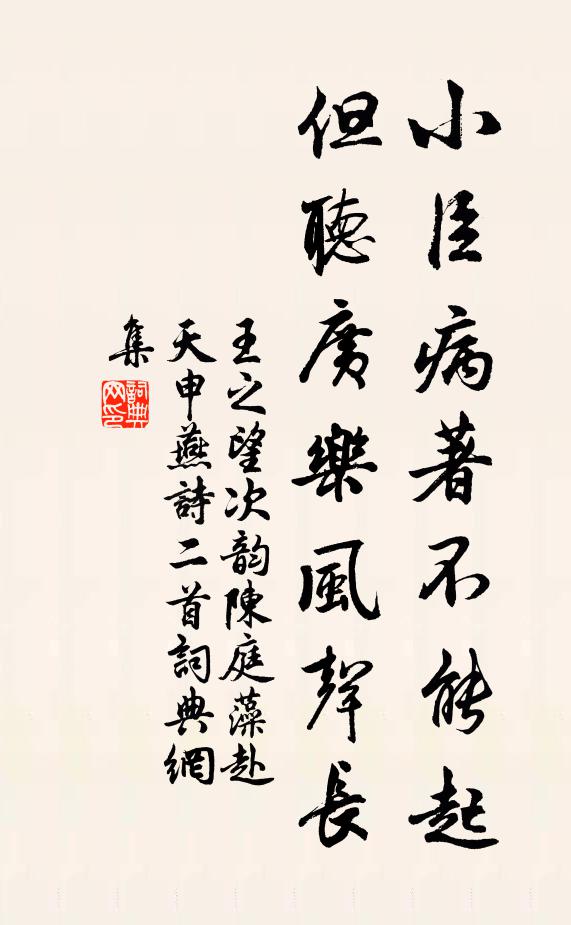 小臣病著不能起
但聽廣樂風聲長
王之望次韵陳庭藻赴
天申燕詩二首詞典網
集
詞典
网印